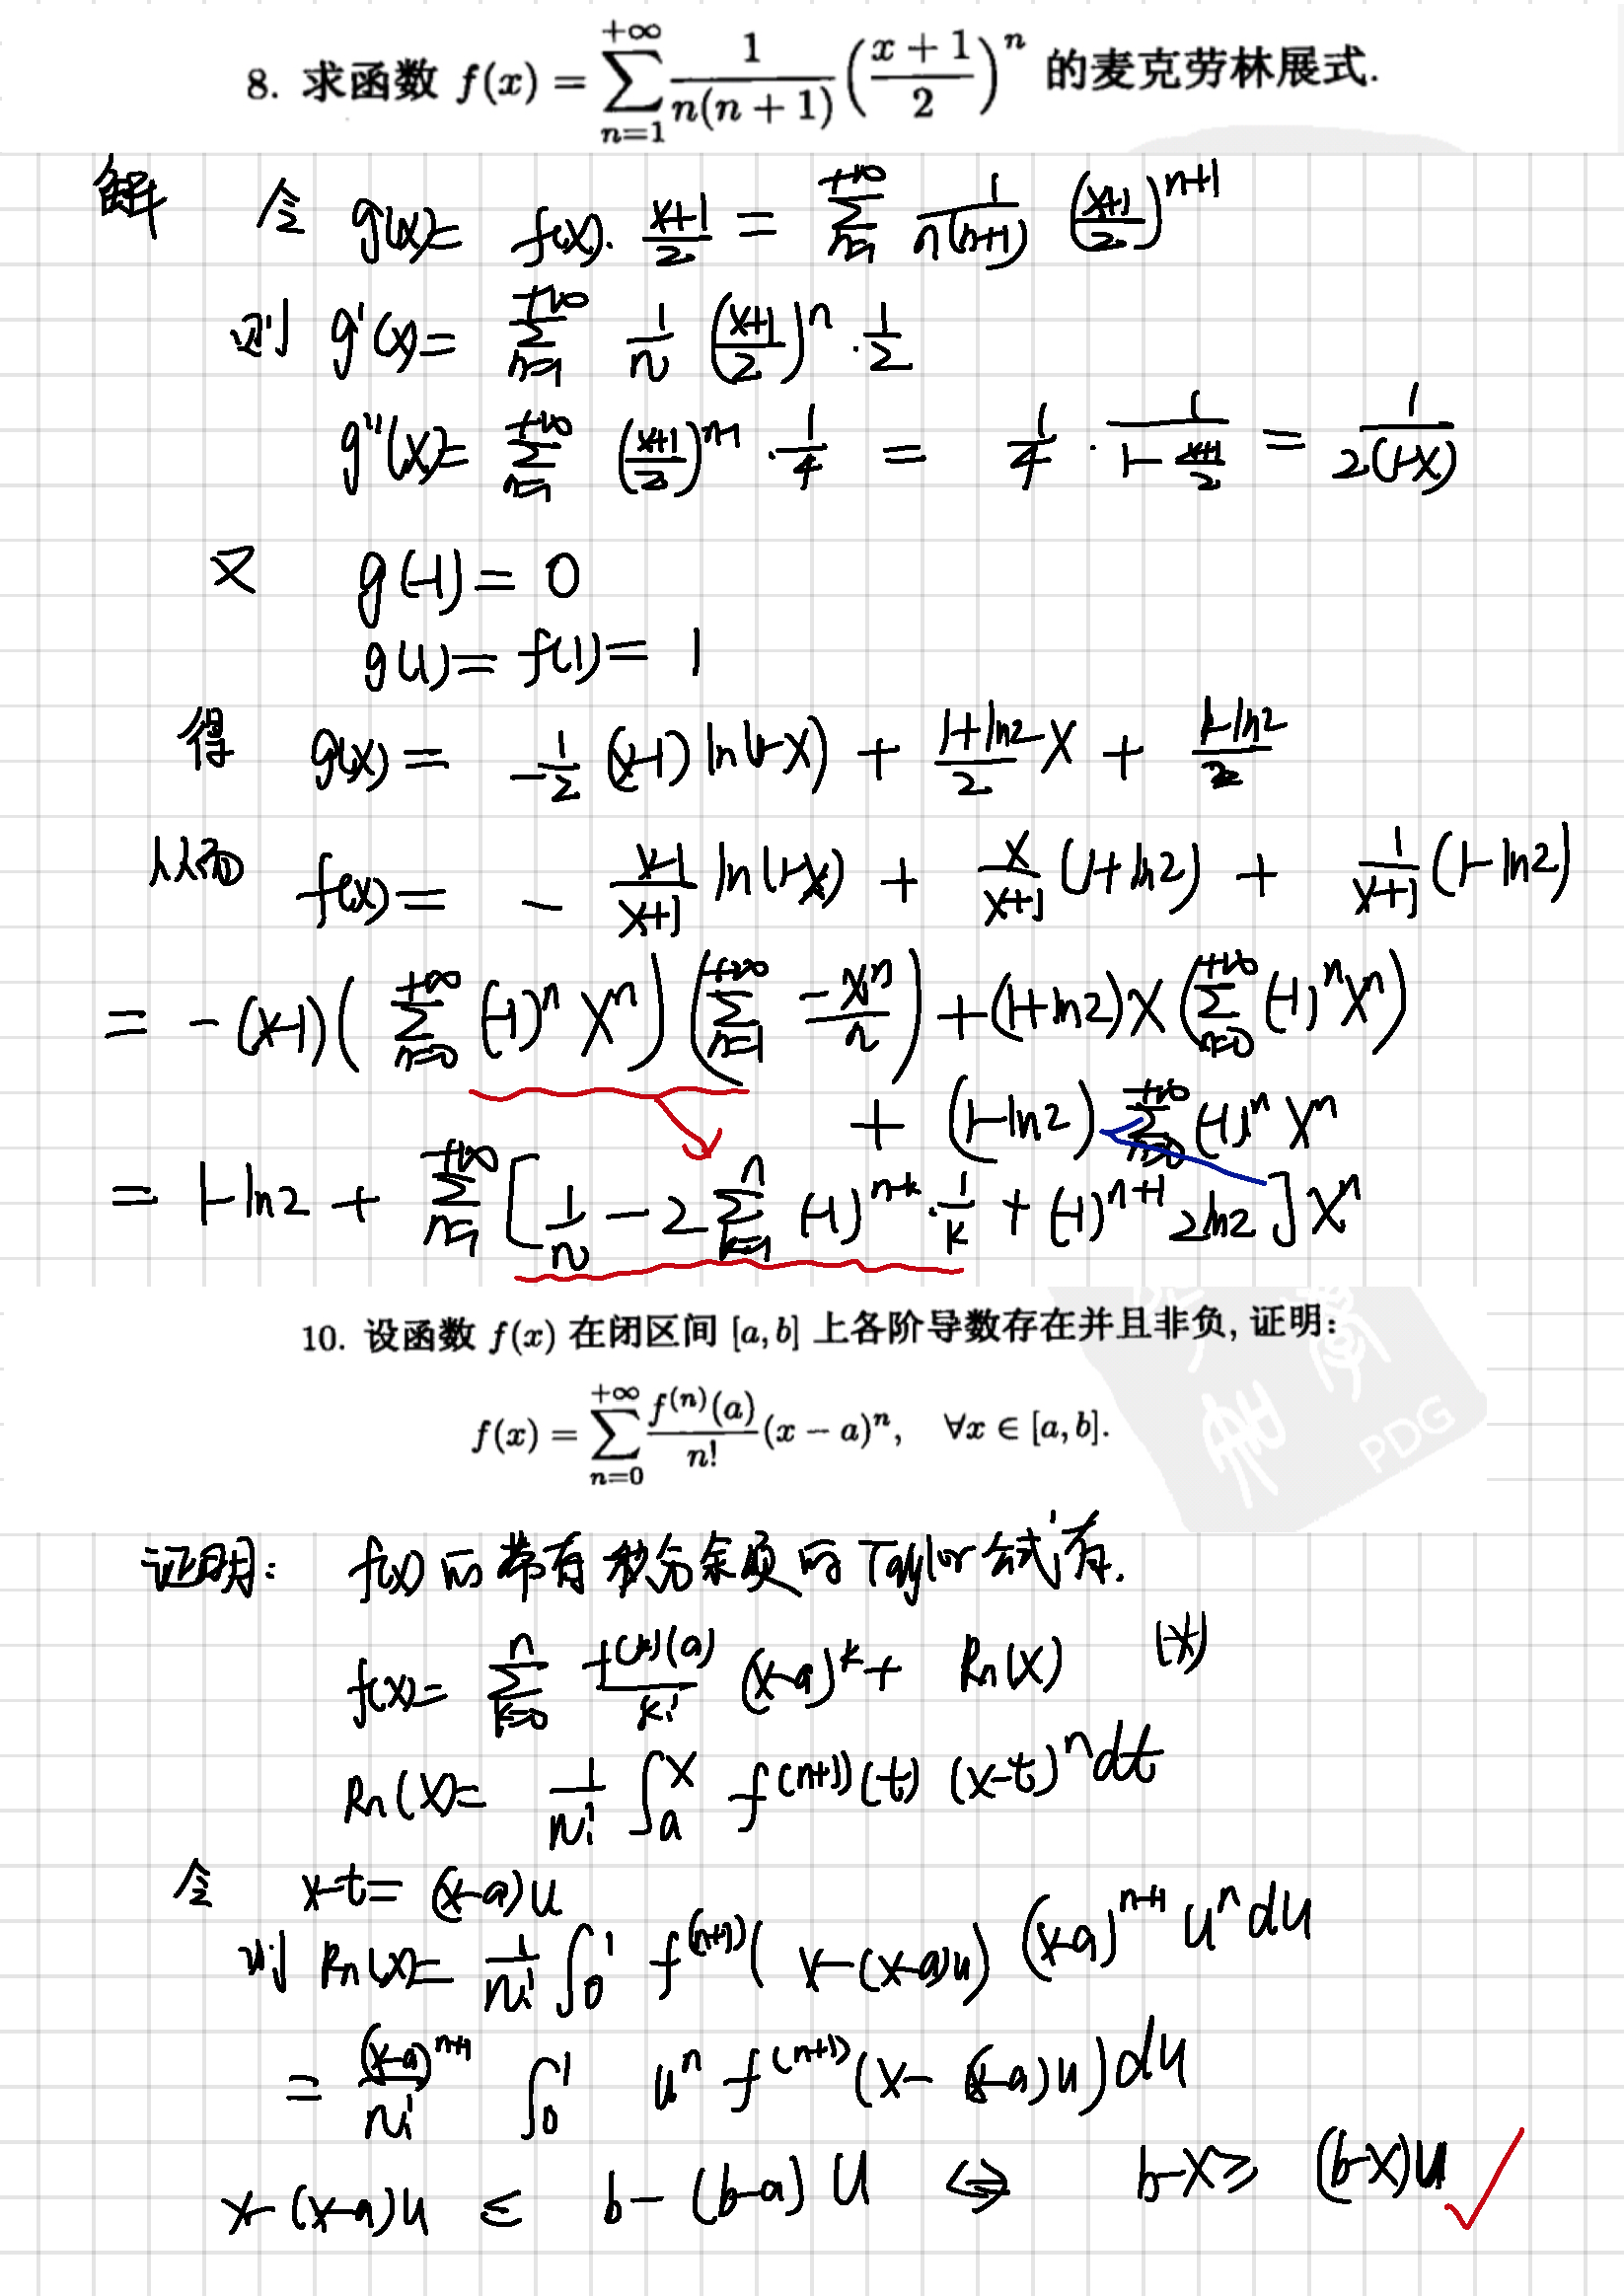 8. 求函数 f(x) = \sum_{n=1}^{+∞} \frac{1}{n(n+1)} \left(\frac{x+1}{2}\right)^n 的麦克劳林展式.
解 令 g(x) = f(x)·\frac{x+1}{2} = \sum_{n=1}^{+∞} \frac{1}{n(n+1)} \left(\frac{x+1}{2}\right)^{n+1}
则 g'(x) = \sum_{n=1}^{+∞} \frac{1}{n} \left(\frac{x+1}{2}\right)^n · \frac{1}{2}
g''(x) = \sum_{n=1}^{+∞} \left(\frac{x+1}{2}\right)^{n-1} · \frac{1}{4} = \frac{1}{4} · \frac{1}{1-\frac{x+1}{2}} = \frac{1}{2(1-x)}
又 g(-1) = 0
g(1) = f(1) = 1
得 g(x) = -\frac{1}{2}(x-1) ln(1-x) + \frac{1+ln2}{2} x + \frac{1-ln2}{2}
从而 f(x) = -\frac{x-1}{x+1} ln(1-x) + \frac{x}{x+1}(1+ln2) + \frac{1}{x+1}(1-ln2)
= -(x-1)\left(\sum_{n=0}^{+∞} (-1)^n x^n\right)\left(\sum_{n=1}^{+∞} -\frac{x^n}{n}\right) + (1+ln2) x \left(\sum_{n=0}^{+∞} (-1)^n x^n\right)
+ (1-ln2) \sum_{n=0}^{+∞} (-1)^n x^n
= 1-ln2 + \sum_{n=1}^{+∞} \left[\frac{1}{n} - 2\sum_{k=1}^{n} (-1)^{n-k}·\frac{1}{k} + (-1)^{n+1} 2ln2\right] x^n
10. 设函数 f(x) 在闭区间 [a, b] 上各阶导数存在并且非负, 证明:
f(x) = \sum_{n=0}^{+∞} \frac{f^{(n)}(a)}{n!} (x-a)^n, ∀x ∈ [a, b].
PDG
证明: f(x) 的带有积分余项的 Taylor 公式有.
f(x) = \sum_{k=0}^{n} \frac{f^{(k)}(a)}{k!} (x-a)^k + R_n(x) (*)
R_n(x) = \frac{1}{n!} \int_a^x f^{(n+1)}(t) (x-t)^n dt
令 x-t = (x-a)u
则 R_n(x) = \frac{1}{n!} \int_0^1 f^{(n+1)}(x-(x-a)u) (x-a)^{n+1} u^n du
= \frac{(x-a)^{n+1}}{n!} \int_0^1 u^n f^{(n+1)}(x-(x-a)u) du
x-(x-a)u ≤ b-(b-a)u ⇔ b-x ≥ (b-x)u ✓